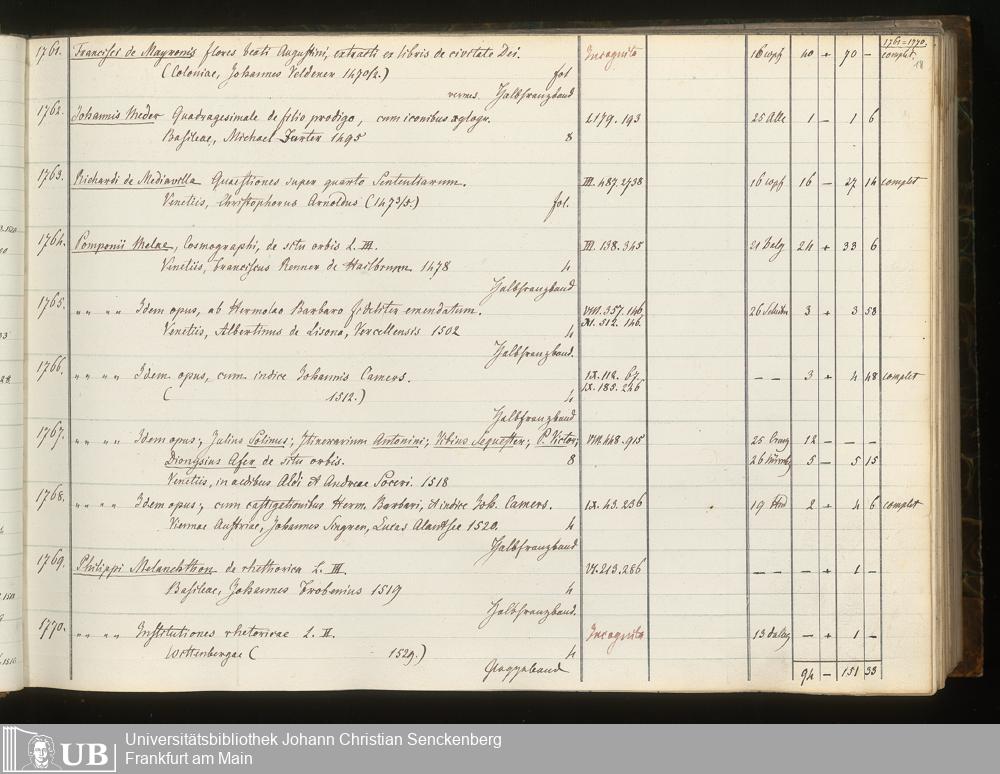 1761=1770.
1761. Francisci de Mayronis flores beati Augustini, extracti ex libris de civitate Dei. Incognito 16 40 + 70 – complet.
(Coloniae, Johannes Veldener 1470/2.) fol
Halbfranzband
1762. Johannis Meder Quadragesimale de filio prodigo, cum iconibus xylogr. 2179.193 25 1 – 1 6
Basileae, Michael Furter 1495 8
1763. Richardi de Mediavilla Quaestiones super quarto Sententiarum. III. 487. 2738 16 16 – 27 14 complet
Venetiis, Christophorus Arnoldus (1473/5.) fol.
1764. Pomponii Melae, Cosmographi, de situ orbis L. III. III. 138. 345 21 24 + 33 6
Venetiis, Franciscus Renner de Hailbrunn 1478 4
Halbfranzband
1765. " " " " Idem opus, ab Hermolao Barbaro fideliter emendatum. VIII. 357. 146. 26 3 + 3 58
XI. 512. 146.
Venetiis, Albertinus de Lisona, Vercellensis 1502 4
Halbfranzband.
1766. " " " " Idem opus, cum indice Johannis Camers. IX. 112. 67. – – 3 + 4 48 complet
IX. 185. 246
( 1512.) 4
Halbfranzband
1767. " " " " Idem opus; Julius Solinus; Itinerarium Antonini; Vibius Sequester; P. Victor; VIII. 448. 915 25 12 – – –
Dionysius Afer de situ orbis. 8 26 Nürnbg 5 – 5 15
Venetiis, in aedibus Aldi et Andreae Soceri. 1518
1768. " " " " Idem opus; cum castigationibus Herm. Barbari, et indice Joh. Camers. IX. 43. 236 19 2 + 4 6 complet
Viennae Austriae, Johannes Singren, Lucas Alantsee 1520. 4
Halbfranzband
1769. Philippi Melanchthon de rhethorica L. III. VI. 213. 286 – – – + 1 –
Basileae, Johannes Frobenius 1519 4
Halbfranzband.
1770. " " " " Institutiones rhetoricae L. II. Incognito 13 – + 1 –
Wittenbergae ( 1529.) 4
Pappband
94 – 151 33
UB
Universitätsbibliothek Johann Christian Senckenberg
Frankfurt am Main